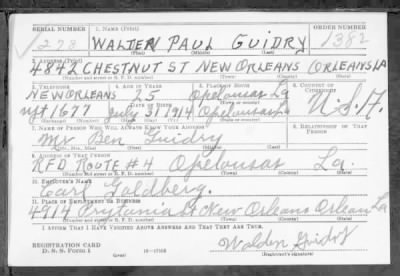 SERIAL NUMBER 1. NAME (Print) ORDER NUMBER
1273 WALTER PAUL GUIDRY 1382
(First) (Middle) (Last)
2. ADDRESS (Print)
4842 CHESTNUT ST NEW ORLEANS ORLEANS LA
(Number and street or R. F. D. number) (Town) (County) (State)
3. TELEPHONE 4. AGE IN YEARS 5. PLACE OF BIRTH 6. COUNTRY OF CITIZENSHIP
NEW ORLEANS 25 Opelousas La
1677 July 31 1914 Opelousas La U.S.A.
7. NAME OF PERSON WHO WILL ALWAYS KNOW YOUR ADDRESS 8. RELATIONSHIP OF THAT PERSON
Mr Ben Guidry
(Mr., Mrs., Miss) (First) (Middle) (Last)
9. ADDRESS OF THAT PERSON
RFD Route #4 Opelousas La.
(Number and street or R. F. D. number) (Town) (County) (State)
10. EMPLOYER'S NAME
Carl Goldberg.
11. PLACE OF EMPLOYMENT OR BUSINESS
4914 Prytania St New Orleans Orleans La
(Number and street or R. F. D. number) (Town) (County) (State)
I AFFIRM THAT I HAVE VERIFIED ABOVE ANSWERS AND THAT THEY ARE TRUE.
REGISTRATION CARD
D. S. S. Form 1 (over) 16—17105 Walden Guidry
(Registrant's signature)